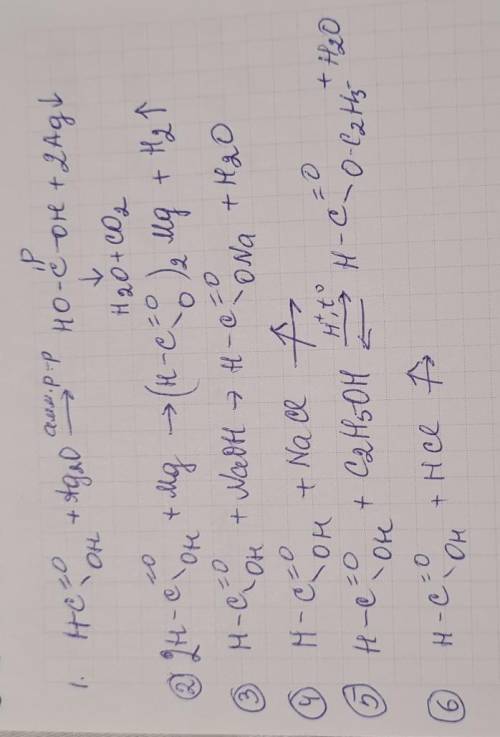 1. H-C(=O)-OH + Ag2O —амм. р-р→ HO-C(=O)-OH + 2Ag↓
↓
H2O + CO2
② 2H-C(=O)-OH + Mg → (H-C(=O)-O)2 Mg + H2↑
③ H-C(=O)-OH + NaOH → H-C(=O)-ONa + H2O
④ H-C(=O)-OH + NaCl ↛
⑤ H-C(=O)-OH + C2H5OH ⇄ (H+, t°) H-C(=O)-O-C2H5 + H2O
⑥ H-C(=O)-OH + HCl ↛